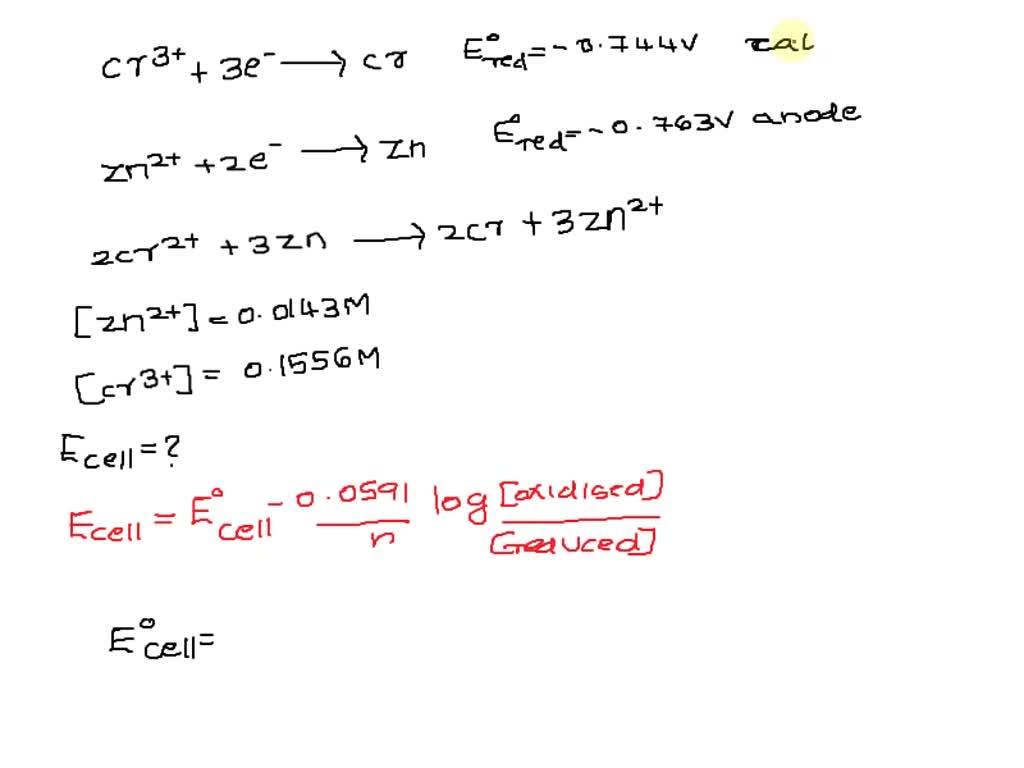 Cr³⁺ + 3e⁻ → Cr E°red = -0.744V cat
Zn²⁺ + 2e⁻ → Zn E°red = -0.763V anode
2Cr²⁺ + 3Zn → 2Cr + 3Zn²⁺
[Zn²⁺] = 0.0143M
[Cr³⁺] = 0.1556M
Ecell = ?
Ecell = E°cell - 0.0591/n log [oxidised]/[reduced]
E°cell =